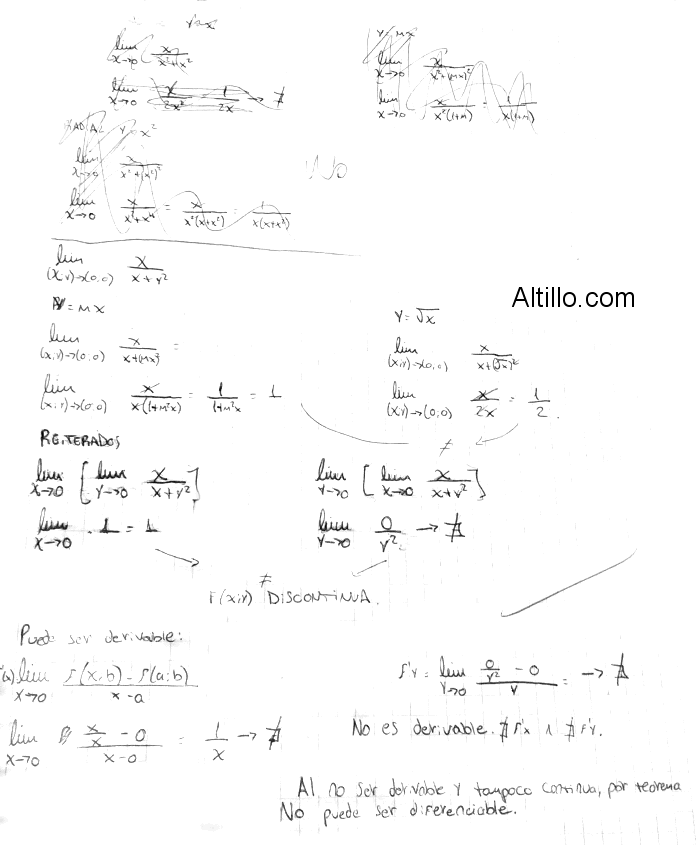 Y=x
lim x→0 x/(x²+x²)
lim x→0 x/2x² 1/2x → ∄
Y=mx
lim x→0 x/(x²+(mx)²)
lim x→0 x/(x²(1+m)) = 1/(x(1+m))
RADIAL Y=x²
lim x→0 x/(x²+(x²)²)
lim x→0 x/(x²+x⁴) = x/(x²(x+x²)) = 1/(x(x+x²))
lim (x,y)→(0,0) x/(x+y²)
Altillo.com
Y=mx
lim (x,y)→(0,0) x/(x+(mx)²) =
lim (x,y)→(0,0) x/(x(1+m²x)) = 1/(1+m²x) = 1
Y=√x
lim (x,y)→(0,0) x/(x+(√x)²)
lim (x,y)→(0,0) x/2x = 1/2.
≠
REITERADOS
lim x→0 [lim y→0 x/(x+y²)]
lim x→0 . 1 = 1
lim y→0 [lim x→0 x/(x+y²)]
lim y→0 0/y² → ∄
≠
F(x,y) DISCONTINUA.
Puede ser derivable:
lim x→0 (f(x,b) - f(a;b))/(x-a)
lim x→0 (x/x - 0)/(x-0) = 1/x → ∄
f'y = lim y→0 (0/y² - 0)/y = → ∄
No es derivable. ∄ f'x ∧ ∄ f'y.
Al no ser derivable y tampoco continua, por teorema
No puede ser diferenciable.